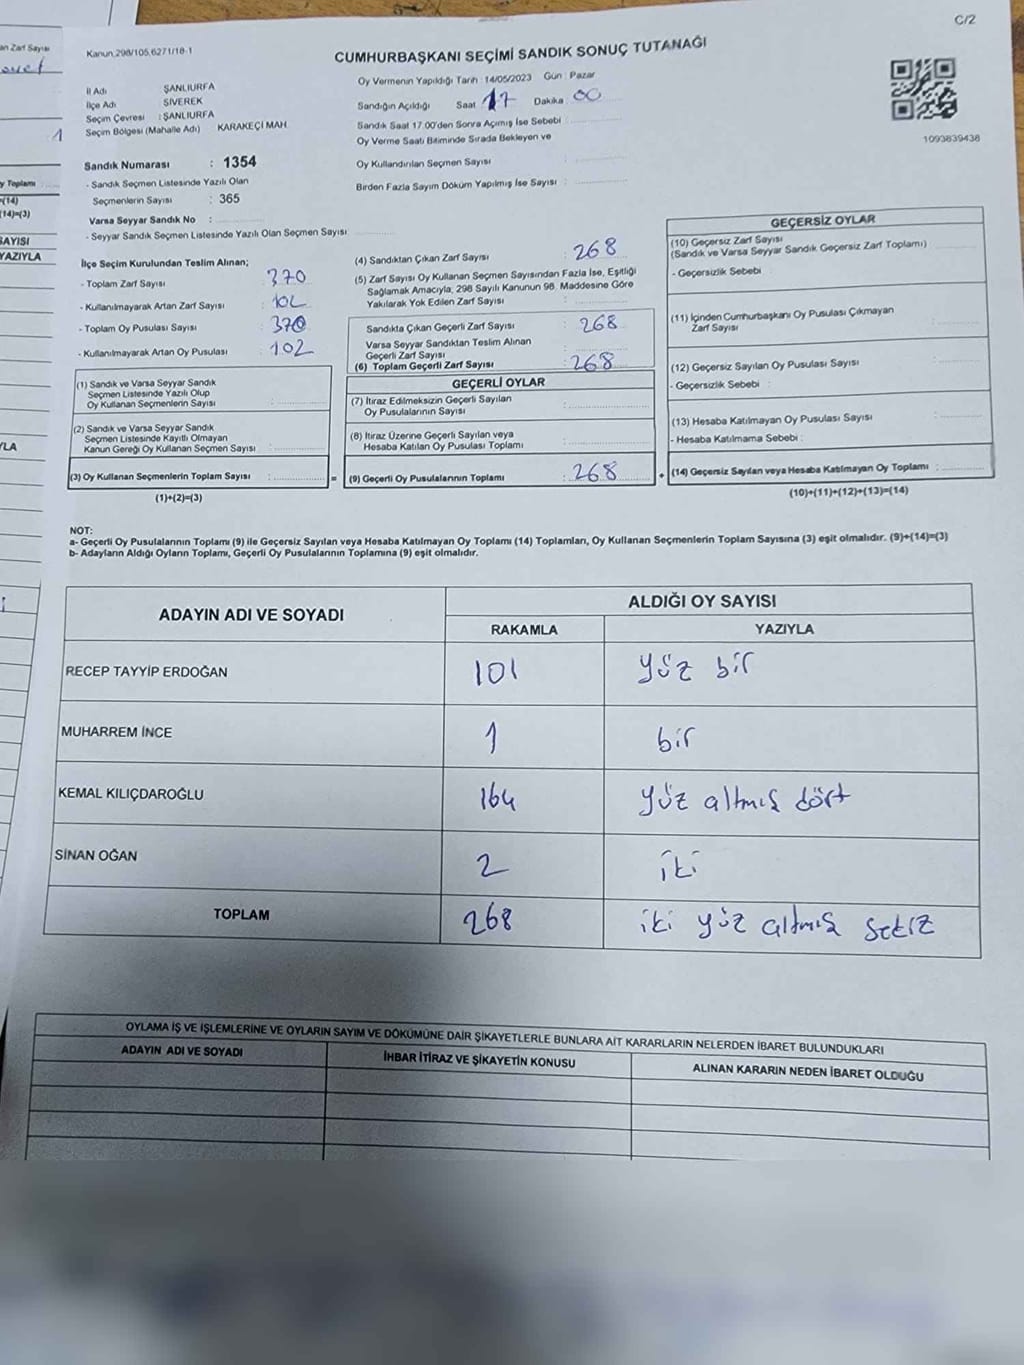 C/2
Kanun.298/105.6271/18-1
CUMHURBAŞKANI SEÇİMİ SANDIK SONUÇ TUTANAĞI
İl Adı ŞANLIURFA
İlçe Adı SİVEREK
Seçim Çevresi : ŞANLIURFA
Seçim Bölgesi (Mahalle Adı) KARAKEÇİ MAH
Sandık Numarası : 1354
- Sandık Seçmen Listesinde Yazılı Olan
Seçmenlerin Sayısı : 365
Varsa Seyyar Sandık No :
- Seyyar Sandık Seçmen Listesinde Yazılı Olan Seçmen Sayısı
Oy Vermenin Yapıldığı Tarih : 14/05/2023 Gün : Pazar
Sandığın Açıldığı Saat 17 Dakika : 00
Sandık Saat 17.00'den Sonra Açımış İse Sebebi :
Oy Verme Saati Bitiminde Sırada Bekleyen ve
Oy Kullandırılan Seçmen Sayısı :
Birden Fazla Sayım Döküm Yapılmış İse Sayısı :
1093839438
İlçe Seçim Kurulundan Teslim Alınan;
- Toplam Zarf Sayısı : 370
- Kullanılmayarak Artan Zarf Sayısı : 102
- Toplam Oy Pusulası Sayısı : 370
- Kullanılmayarak Artan Oy Pusulası : 102
(1) Sandık ve Varsa Seyyar Sandık
Seçmen Listesinde Yazılı Olup
Oy Kullanan Seçmenlerin Sayısı :
(2) Sandık ve Varsa Seyyar Sandık
Seçmen Listesinde Kayıtlı Olmayan
Kanun Gereği Oy Kullanan Seçmen Sayısı :
(3) Oy Kullanan Seçmenlerin Toplam Sayısı : =
(1)+(2)=(3)
(4) Sandıktan Çıkan Zarf Sayısı : 268
(5) Zarf Sayısı Oy Kullanan Seçmen Sayısından Fazla İse, Eşitliği
Sağlamak Amacıyla, 298 Sayılı Kanunun 98. Maddesine Göre
Yakılarak Yok Edilen Zarf Sayısı :
Sandıkta Çıkan Geçerli Zarf Sayısı : 268
Varsa Seyyar Sandıktan Teslim Alınan
Geçerli Zarf Sayısı :
(6) Toplam Geçerli Zarf Sayısı : 268
GEÇERLİ OYLAR
(7) İtiraz Edilmeksizin Geçerli Sayılan
Oy Pusulalarının Sayısı :
(8) İtiraz Üzerine Geçerli Sayılan veya
Hesaba Katılan Oy Pusulası Toplamı :
(9) Geçerli Oy Pusulalarının Toplamı : 268 +
GEÇERSİZ OYLAR
(10) Geçersiz Zarf Sayısı
(Sandık ve Varsa Seyyar Sandık Geçersiz Zarf Toplamı) :
- Geçersizlik Sebebi :
(11) İçinden Cumhurbaşkanı Oy Pusulası Çıkmayan
Zarf Sayısı :
(12) Geçersiz Sayılan Oy Pusulası Sayısı :
- Geçersizlik Sebebi :
(13) Hesaba Katılmayan Oy Pusulası Sayısı :
- Hesaba Katılmama Sebebi :
(14) Geçersiz Sayılan veya Hesaba Katılmayan Oy Toplamı :
(10)+(11)+(12)+(13)=(14)
NOT:
a- Geçerli Oy Pusulalarının Toplamı (9) ile Geçersiz Sayılan veya Hesaba Katılmayan Oy Toplamı (14) Toplamları, Oy Kullanan Seçmenlerin Toplam Sayısına (3) eşit olmalıdır. (9)+(14)=(3)
b- Adayların Aldığı Oyların Toplamı, Geçerli Oy Pusulalarının Toplamına (9) eşit olmalıdır.
ADAYIN ADI VE SOYADI ALDIĞI OY SAYISI
RAKAMLA YAZIYLA
RECEP TAYYİP ERDOĞAN 101 yüz bir
MUHARREM İNCE 1 bir
KEMAL KILIÇDAROĞLU 164 yüz altmış dört
SİNAN OĞAN 2 iki
TOPLAM 268 iki yüz altmış sekiz
OYLAMA İŞ VE İŞLEMLERİNE VE OYLARIN SAYIM VE DÖKÜMÜNE DAİR ŞİKAYETLERLE BUNLARA AİT KARARLARIN NELERDEN İBARET BULUNDUKLARI
ADAYIN ADI VE SOYADI İHBAR İTİRAZ VE ŞİKAYETİN KONUSU ALINAN KARARIN NEDEN İBARET OLDUĞU